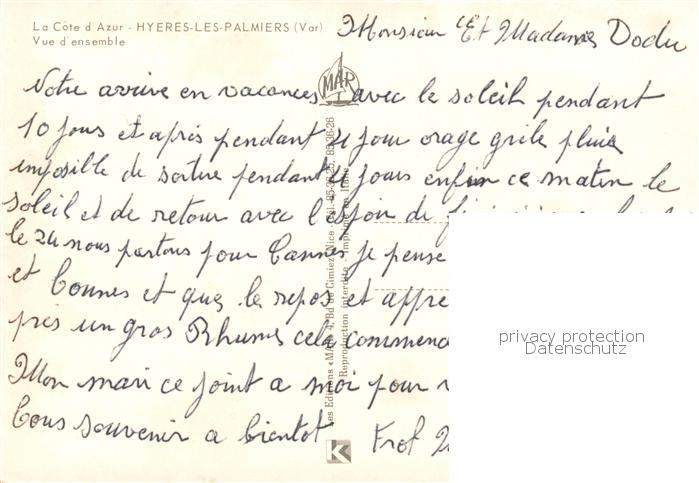 La Côte d'Azur - HYERES-LES-PALMIERS (Var)
Vue d'ensemble
Monsieur Et Madames Dodu
MAR
Notre arrive en vacances avec le soleil pendant
10 jours et après pendant 4 jour orage grile pluie
imposible de sortire pendant 4 jours enfin ce matin le
soleil et de retour avec l'espoir de
le 24 nous partons pour Cannes je pense
et bonnes et ques le repos et appre
pris un gros Rhumes cela commenc
Mon mari ce joint a moi pour
bous souvenir a bientot
Les Editions «MAR» 4, Bd de Cimiez, Nice - Tél. 85-36-25, 85-36-26
Reproduction interdite - Imprimé en Italie
privacy protection
Datenschutz
K